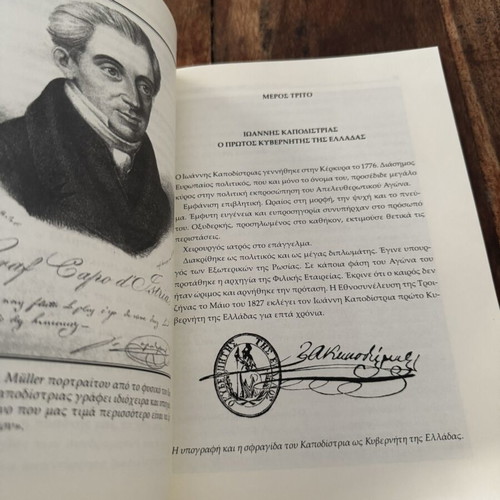 Graf Capo d'Istria
Müller πορτραίτου από το φυσικό το
αποδίστριας γράφει ιδιόχειρα και
νο που μας τιμά περισσότερο είναι
ων».
ΜΕΡΟΣ ΤΡΙΤΟ
ΙΩΑΝΝΗΣ ΚΑΠΟΔΙΣΤΡΙΑΣ
Ο ΠΡΩΤΟΣ ΚΥΒΕΡΝΗΤΗΣ ΤΗΣ ΕΛΛΑΔΑΣ
Ο Ιωάννης Καποδίστριας γεννήθηκε στην Κέρκυρα το 1776. Διάσημος
Ευρωπαίος πολιτικός, που και μόνο το όνομα του, προσέδιδε μεγάλο
κύρος στην πολιτική εκπροσώπηση του Απελευθερωτικού Αγώνα.
Εμφάνιση επιβλητική. Ωραίος στη μορφή, την ψυχή και το πνεύ-
μα. Έμφυτη ευγένεια και ευπροσηγορία συνυπήρχαν στο πρόσωπό
του. Οξυδερκής, προσηλωμένος στο καθήκον, εκτιμούσε θετικά τις
περιστάσεις.
Χειρουργός ιατρός στο επάγγελμα.
Διακρίθηκε ως πολιτικός και ως μέγας διπλωμάτης. Έγινε υπουρ-
γός των Εξωτερικών της Ρωσίας. Σε κάποια φάση του Αγώνα του
προτάθηκε η αρχηγία της Φιλικής Εταιρείας. Έκρινε ότι ο καιρός δεν
ήταν ώριμος και αρνήθηκε την πρόταση. Η Εθνοσυνέλευση της Τροι-
ζήνας το Μάιο του 1827 εκλέγει τον Ιωάννη Καποδίστρια πρώτο Κυ-
βερνήτη της Ελλάδας για επτά χρόνια.
Ο ΚΥΒΕΡΝΗΤΗΣ ΤΗΣ ΕΛΛΑΔΟΣ
Ι Α Καποδίστριας
Η υπογραφή και η σφραγίδα του Καποδίστρια ως Κυβερνήτη της Ελλάδας.